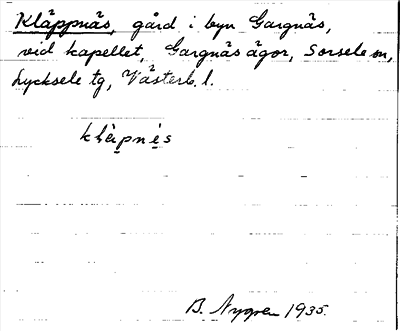 Kläppnäs, gård i byn Gargnäs,
vid kapellet, Gargnäs ägor, Sorsele sn,
Lycksele tg, Västerb. l.
klèpnés
B. Nygren 1935.